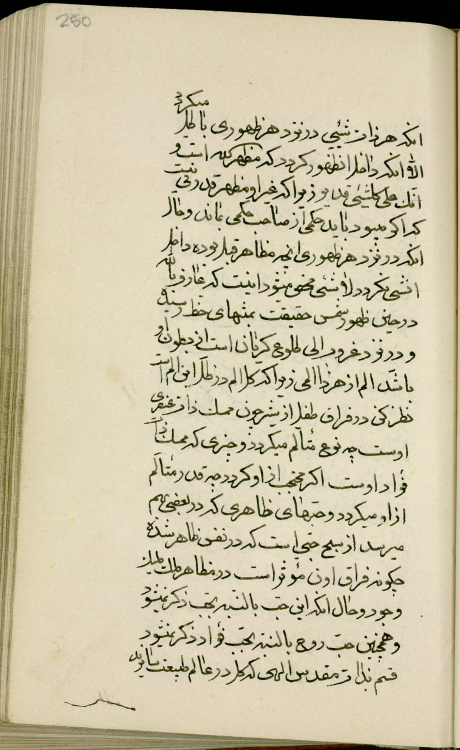 250
میکردد
انکه هر ذات شیئی در نزد هر ظهوری باطل
الا انکه داخل ان ظهور کردد که مظهر الله است و
انک علی کلشیئی قدیر زیرا که غیر او مظهر قدرتی نیست
که اکر میبود نباید حکمی از صاحب حکمی بماند و حال
انکه در نزد هر ظهوری انچه مظاهر قبل بوده داخل
لا شیئی میشود اینست که عارف بالله
در حین ظهور شمس حقیقت بمنتهای حظ رسیده
و در نزد غروب الی طلوع کریان است از بطون او
باشد الم از هر ذا المی زیرا که کل الم در ظل این الم است
نظر کن در فراق طفل از شیر چون ممد ذات عنصری
اوست چه نوع متالم میکردد و چیزی که ممد ذات
فؤاد اوست اکر محتجب از او کردد چه قدر متالم
از او میکردد و حبهای ظاهری که در بعضی بهم
میرسد از شبح حبی است که در نفس ظاهر شده
چکونه فراق اون مؤثر است در مظاهر
وجود و حال انکه این حب بالنسبه بحب ذکر نمیشود
و همچنین حب روح بالنسبه بحب فؤاد ذکر نمیشود
قسم بذات مقدس الهی که کل در عالم طبیعت